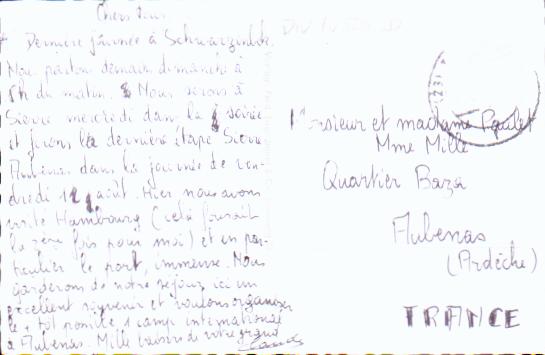 Chers tous,
Dernière journée à
Nous partons demain dimanche à
5h du matin. Nous serons à
Sierre mercredi dans la soirée
et ferons la dernière étape Sierre
Aubenas dans la journée de ven-
dredi août. Hier nous avons
visité Hambourg (cela faisait
la fois pour moi) et en par-
ticulier le port, immense. Nous
garderons de notre séjour ici un
excellent souvenir et voulons organiser
le + tôt possible 1 camp international
à Aubenas. Mille baisers de votre grand
Claude
Monsieur et madame Poulet
Mme Mille
Quartier Baza
Aubenas
(Ardèche)
FRANCE